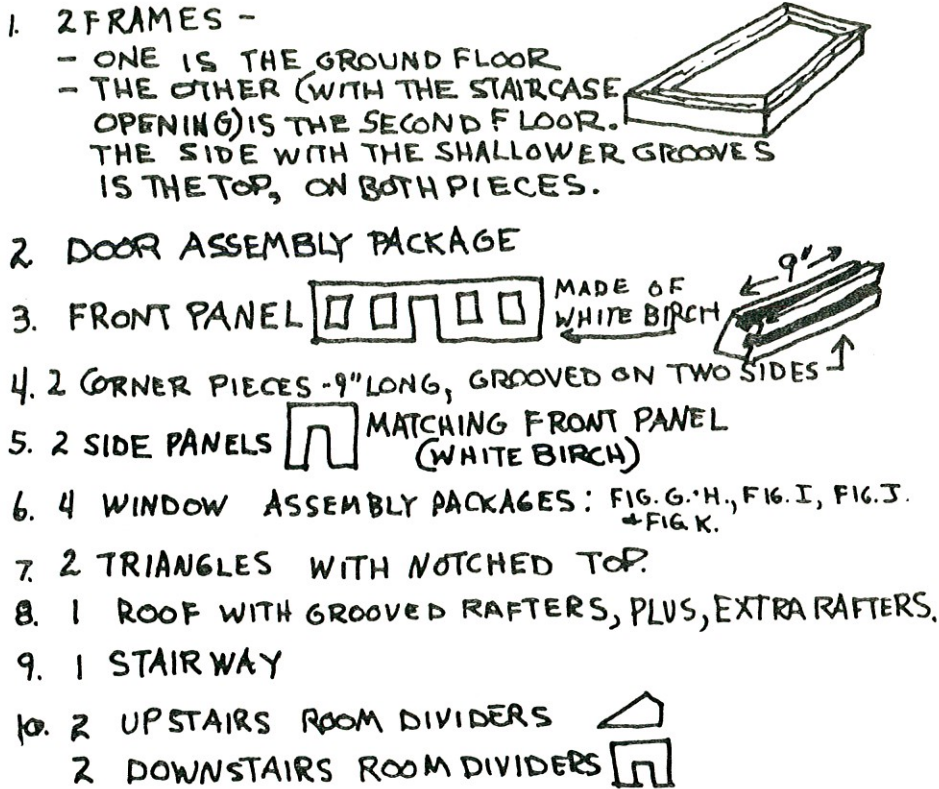 1. 2 FRAMES -
- ONE IS THE GROUND FLOOR
- THE OTHER (WITH THE STAIRCASE
OPENING) IS THE SECOND FLOOR.
THE SIDE WITH THE SHALLOWER GROOVES
IS THE TOP, ON BOTH PIECES.
2 DOOR ASSEMBLY PACKAGE
3. FRONT PANEL MADE OF
WHITE BIRCH
9"
4. 2 CORNER PIECES - 9" LONG, GROOVED ON TWO SIDES
5. 2 SIDE PANELS MATCHING FRONT PANEL
(WHITE BIRCH)
6. 4 WINDOW ASSEMBLY PACKAGES: FIG. G.·H., FIG. I, FIG. J.
+ FIG K.
7. 2 TRIANGLES WITH NOTCHED TOP.
8. 1 ROOF WITH GROOVED RAFTERS, PLUS, EXTRA RAFTERS.
9. 1 STAIRWAY
10. 2 UPSTAIRS ROOM DIVIDERS
2 DOWNSTAIRS ROOM DIVIDERS